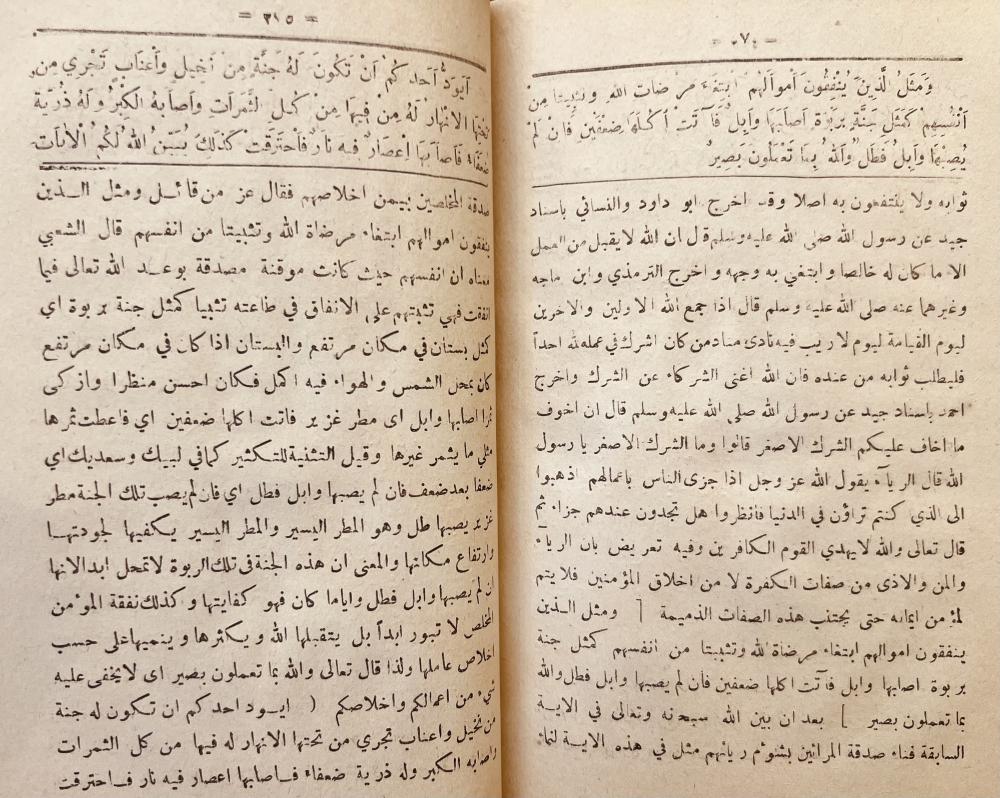 وَمَثَلُ الَّذِينَ يُنْفِقُونَ اَمْوَالَهُمُ ابْتِغَاءَ مَرْضَاتِ اللهِ وَتَثْبِيتًا مِنْ
اَنْفُسِهِمْ كَمَثَلِ جَنَّةٍ بِرَبْوَةٍ اَصَابَهَا وَابِلٌ فَآتَتْ اُكُلَهَا ضِعْفَيْنِ فَاِنْ لَمْ
يُصِبْهَا وَابِلٌ فَطَلٌّ وَاللهُ بِمَا تَعْمَلُونَ بَصِيرٌ
ثوابه ولا ينتفعون به اصلا وقد اخرج ابو داود والنسائي باسناد
جيد عن رسول الله صلى الله عليه وسلم قال ان الله لا يقبل من العمل
الا ما كان له خالصا وابتغي به وجهه واخرج الترمذي وابن ماجه
وغيرهما عنه صلى الله عليه وسلم قال اذا جمع الله الاولين والاخرين
ليوم القيامة ليوم لا ريب فيه نادى مناد من كان اشرك في عمله لله احداً
فليطلب ثوابه من عنده فان الله اغنى الشركاء عن الشرك واخرج
احمد باسناد جيد عن رسول الله صلى الله عليه وسلم قال ان اخوف
ما اخاف عليكم الشرك الاصغر قالوا وما الشرك الاصغر يا رسول
الله قال الرياء يقول الله عز وجل اذا جزى الناس باعمالهم اذهبوا
الى الذي كنتم تراؤن في الدنيا فانظروا هل تجدون عندهم جزاء ثم
قال تعالى والله لا يهدي القوم الكافرين وفيه تعريض بان الرياء
والمن والاذى من صفات الكفرة لا من اخلاق المؤمنين فلا يتم
لمؤمن ايمانه حتى يجتنب هذه الصفات الذميمة [ ومثل الذين
ينفقون اموالهم ابتغاء مرضاة الله وتثبيتا من انفسهم كمثل جنة
بربوة اصابها وابل فآتت اكلها ضعفين فان لم يصبها وابل فطل والله
بما تعملون بصير ] بعد ان بين الله سبحنه وتعالى في الاية
السابقة فناء صدقة المرائين بشؤم ريائهم مثل في هذه الاية لنماء
= ٣١٥ =
اَيَوَدُّ اَحَدُكُمْ اَنْ تَكُونَ لَهُ جَنَّةٌ مِنْ نَخِيلٍ وَاَعْنَابٍ تَجْرِي مِنْ
تَحْتِهَا الْاَنْهَارُ لَهُ فِيهَا مِنْ كُلِّ الثَّمَرَاتِ وَاَصَابَهُ الْكِبَرُ وَلَهُ ذُرِّيَّةٌ
ضُعَفَاءُ فَاَصَابَهَا اِعْصَارٌ فِيهِ نَارٌ فَاحْتَرَقَتْ كَذَلِكَ يُبَيِّنُ اللهُ لَكُمُ الْآيَاتِ
صدقة المخلصين بيمن اخلاصهم فقال عز من قائل ومثل الذين
ينفقون اموالهم ابتغاء مرضاة الله وتثبيتا من انفسهم قال الشعبي
معناه ان انفسهم حيث كانت موقنة مصدقة بوعد الله تعالى فيما
انفقت فهي تثبتهم على الانفاق في طاعته تثبيا كمثل جنة بربوة اي
كمثل بستان في مكان مرتفع والبستان اذا كان في مكان مرتفع
كان بمحل الشمس والهواء فيه اكمل فكان احسن منظرا وازكى
ثمرا اصابها وابل اى مطر غزير فاتت اكلها ضعفين اي فاعطت ثمرها
مثلي ما يثمر غيرها وقيل التثنية للتكثير كما في لبيك وسعديك اي
ضعفا بعد ضعف فان لم يصبها وابل فطل اي فان لم يصب تلك الجنة مطر
غزير يصبها طل وهو المطر اليسير والمطر اليسير يكفيها لجودتها
وارتفاع مكانها والمعنى ان هذه الجنة في تلك الربوة لا تمحل ابدا لانها
ان لم يصبها وابل فطل واياما كان فهو كفايتها وكذلك نفقة المؤمن
المخلص لا تبور ابداً بل يتقبلها الله ويكثرها وينميها على حسب
اخلاص عاملها ولذا قال تعالى والله بما تعملون بصير اى لا يخفى عليه
شيء من اعمالكم واخلاصكم ( ايود احدكم ان تكون له جنة
من نخيل واعناب تجري من تحتها الانهار له فيها من كل الثمرات
واصابه الكبر وله ذرية ضعفاء فاصابها اعصار فيه نار فاحترقت